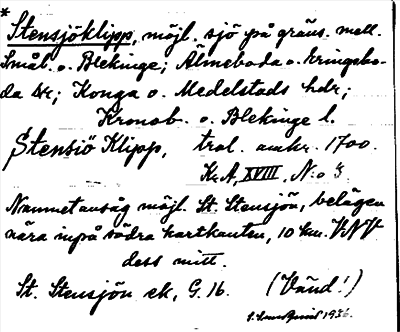 *
Stensjöklipp, möjl. sjö på gräns. mell.
Smål. o. Blekinge; Älmeboda o. Kringebo-
da snr; Konga o. Medelstads hdr;
Kronob. o. Blekinge l.
Stensiö Klipp, trol. omkr. 1700.
Kr.A, XVIII, N:o 3
Namnet ansåg möjl. St. Stensjön, belägen
nära inpå södra kartkanten, 10 km. VNV
dess mitt.
St. Stensjön ek, G. 16. (Vänd!)
1936.